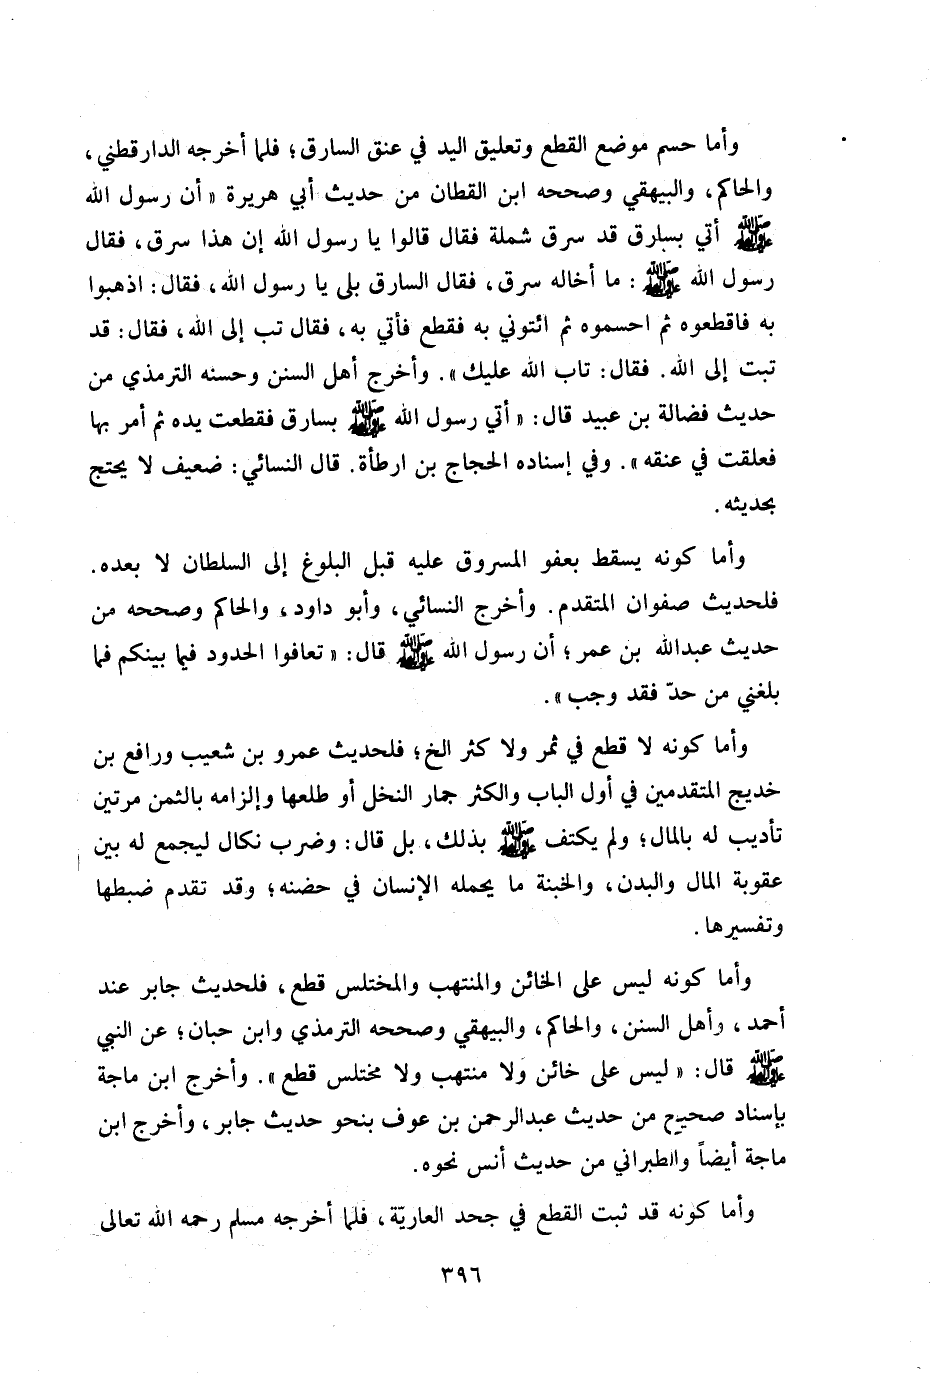 وأما حسم موضع القطع وتعليق اليد في عنق السارق؛ فلما أخرجه الدارقطني،
والحاكم، والبيهقي وصححه ابن القطان من حديث أبي هريرة «أن رسول الله
ﷺ أتي بسارق قد سرق شملة فقال قالوا يا رسول الله إن هذا سرق، فقال
رسول الله ﷺ: ما أخاله سرق، فقال السارق بلى يا رسول الله، فقال: اذهبوا
به فاقطعوه ثم احسموه ثم ائتوني به فقطع فأتي به، فقال تب إلى الله، فقال: قد
تبت إلى الله. فقال: تاب الله عليك». وأخرج أهل السنن وحسنه الترمذي من
حديث فضالة بن عبيد قال: «أتي رسول الله ﷺ بسارق فقطعت يده ثم أمر بها
فعلقت في عنقه». وفي إسناده الحجاج بن ارطأة. قال النسائي: ضعيف لا يحتج
بحديثه.
وأما كونه يسقط بعفو المسروق عليه قبل البلوغ إلى السلطان لا بعده.
فلحديث صفوان المتقدم. وأخرج النسائي، وأبو داود، والحاكم وصححه من
حديث عبدالله بن عمر؛ أن رسول الله ﷺ قال: «تعافوا الحدود فيما بينكم فما
بلغني من حدّ فقد وجب».
وأما كونه لا قطع في ثمر ولا كثر الخ؛ فلحديث عمرو بن شعيب ورافع بن
خديج المتقدمين في أول الباب والكثر جمار النخل أو طلعها وإلزامه بالثمن مرتين
تأديب له بالمال؛ ولم يكتف ﷺ بذلك، بل قال: وضرب نكال ليجمع له بين
عقوبة المال والبدن، والخبنة ما يحمله الإنسان في حضنه؛ وقد تقدم ضبطها
وتفسيرها.
وأما كونه ليس على الخائن والمنتهب والمختلس قطع، فلحديث جابر عند
أحمد، وأهل السنن، والحاكم، والبيهقي وصححه الترمذي وابن حبان؛ عن النبي
ﷺ قال: «ليس على خائن ولا منتهب ولا مختلس قطع». وأخرج ابن ماجة
بإسناد صحيح من حديث عبدالرحمن بن عوف بنحو حديث جابر، وأخرج ابن
ماجة أيضاً والطبراني من حديث أنس نحوه.
وأما كونه قد ثبت القطع في جحد العاريّة، فلما أخرجه مسلم رحمه الله تعالى
٣٩٦